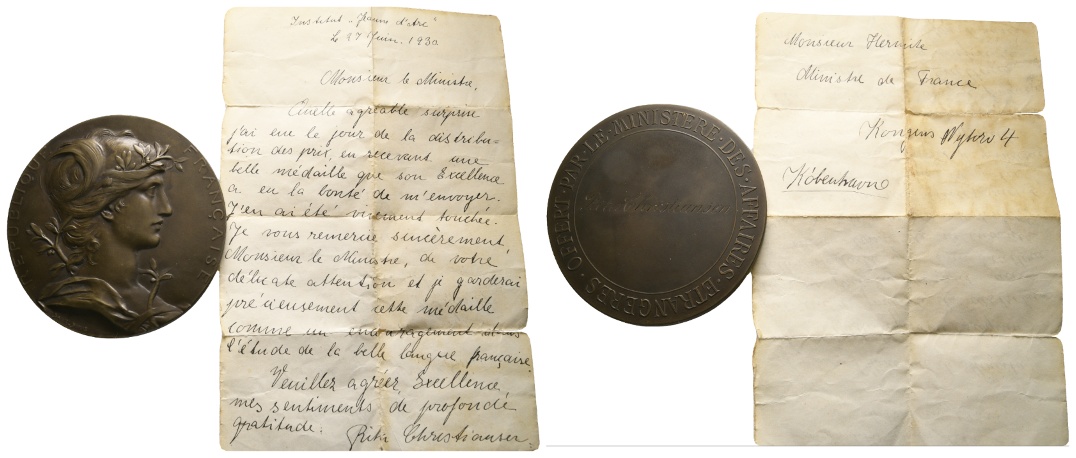 RÉPUBLIQUE FRANÇAISE
Institut „Jeanne d'Arc"
Le 27 Juin. 1930
Monsieur le Ministre,
Quelle agréable surprise
j'ai eue le jour de la distribu-
tion des prix, en recevant une
belle médaille que son Excellence
a eu la bonté de m'envoyer.
J'en ai été vivement touchée.
Je vous remercie sincèrement,
Monsieur le Ministre, de votre
délicate attention et je garderai
précieusement cette médaille
comme un encouragement
l'étude de la belle langue française.
Veuillez agréer, Excellence,
mes sentiments de profonde
gratitude.
Christiansen
OFFERT·PAR·LE·MINISTERE·DES·AFFAIRES·ETRANGERES·
Christiansen
Monsieur Hermite
Ministre de France
Kongens Nytorv 4
København